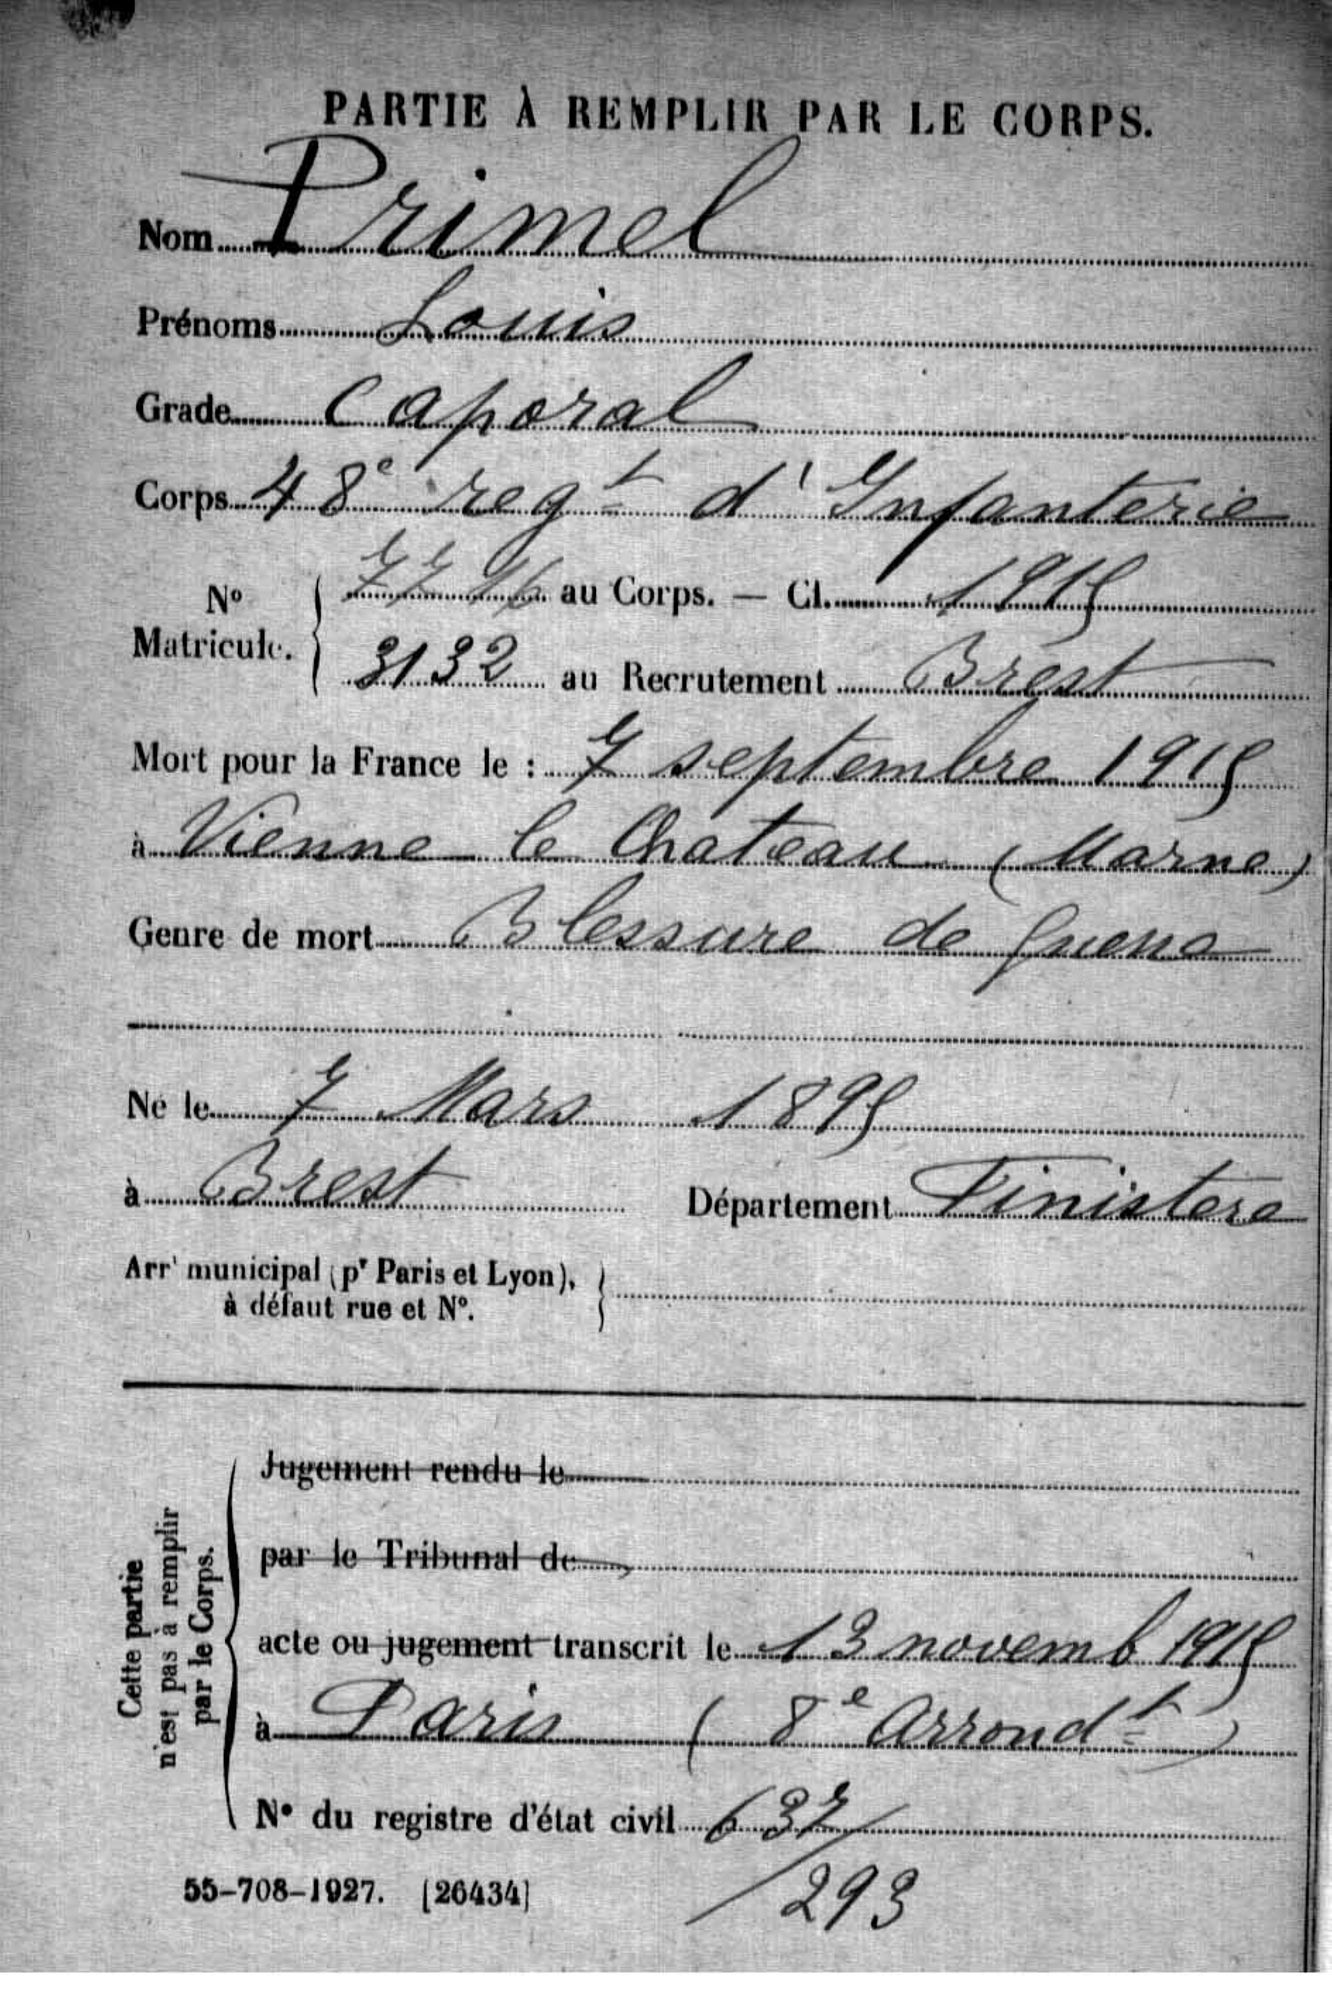 PARTIE À REMPLIR PAR LE CORPS.
Nom Primel
Prénoms Louis
Grade Caporal
Corps 48e regt d'Infanterie
No Matricule. { 7716 au Corps. — Cl. 1915
3132 au Recrutement Brest
Mort pour la France le : 7 septembre 1915
à Vienne le Chateau (Marne)
Genre de mort Blessure de guerre
Né le 7 Mars 1895
à Brest Département Finistere
Arrt municipal (pr Paris et Lyon),
à défaut rue et No.
Cette partie
n'est pas à remplir
par le Corps.
Jugement rendu le
par le Tribunal de
acte ou jugement transcrit le 13 novemb 1915
à Paris (8e Arrondt)
No du registre d'état civil 637/
/293
55-708-1927. [26434]